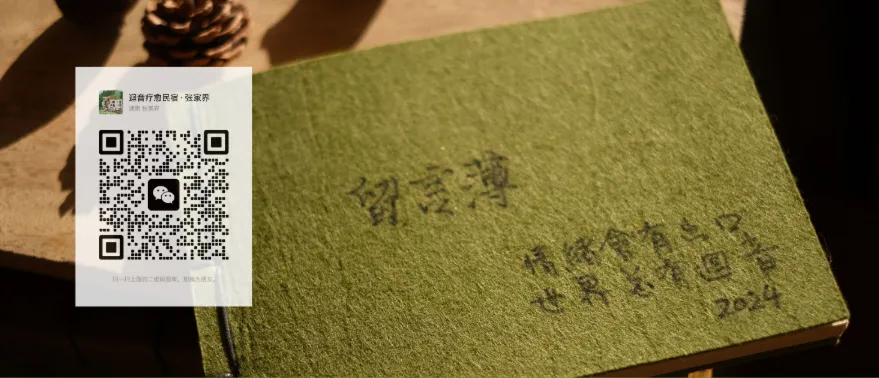 迴音疗愈民宿·张家界
湖南 张家界
扫一扫上面的二维码图案，加我为朋友。
留言薄
情緒會有出口
世界总有迴音
2024